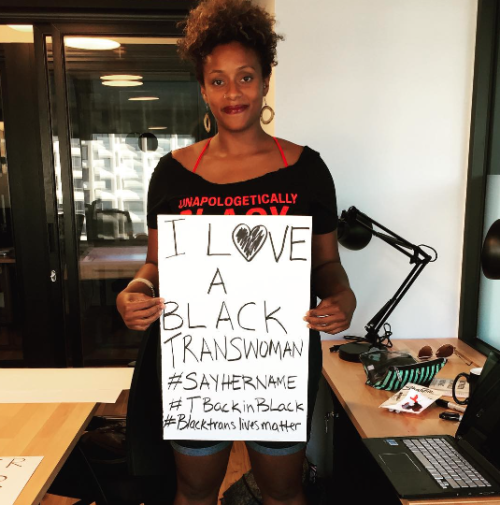 UNAPOLOGETICALLY
I LOVE
A
BLACK
TRANSWOMAN
#SAYHERNAME
#TBackinBLack
#Blacktranslivesmatter